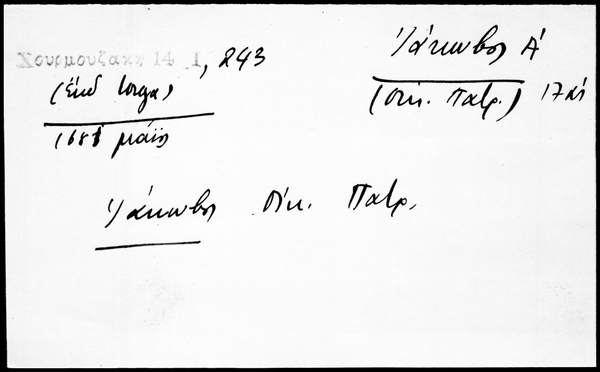 Χουρμουζακη 14 I, 243
(Ἐκδ Iorga)
1681 μάϊος
Ἰάκωβος Α΄
(Οἰκ. Πατρ.) 17 αἰ
Ἰάκωβος Οἰκ. Πατρ.